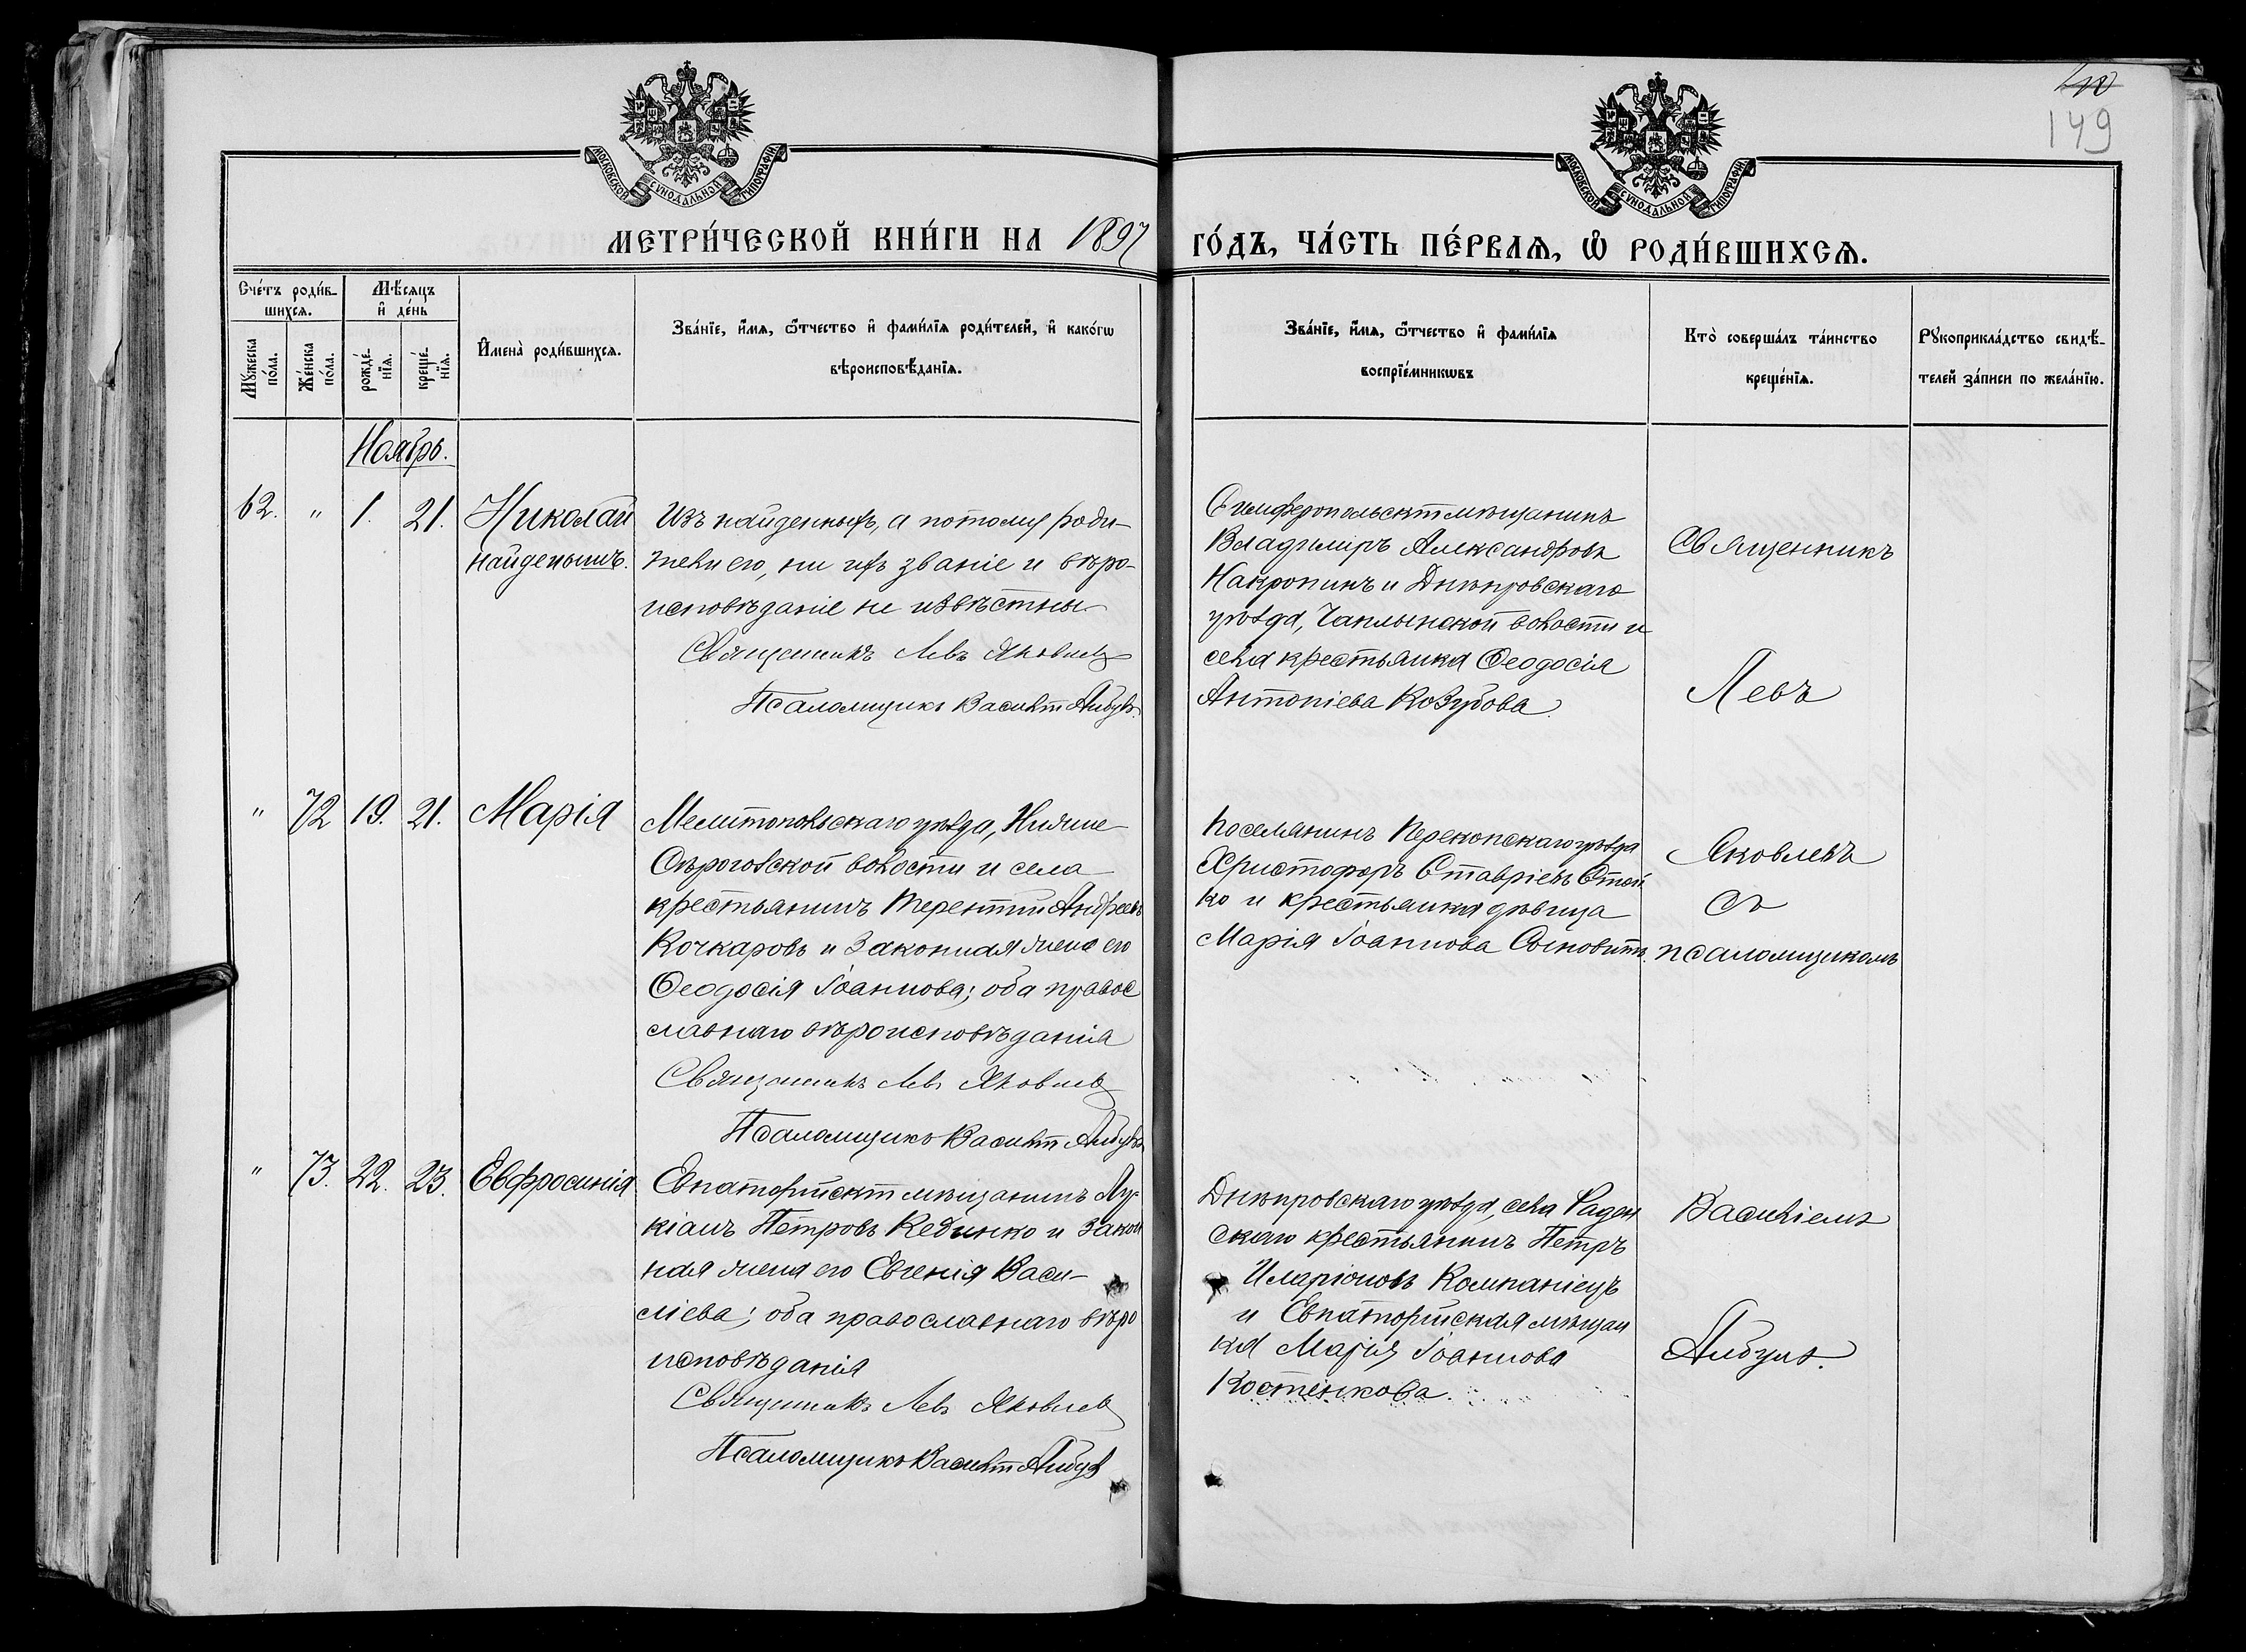 40
149
МОСКОВСКОЙ СѴНОДАЛЬНОЙ ТИПОГРАФІИ
МОСКОВСКОЙ СѴНОДАЛЬНОЙ ТИПОГРАФІИ
МЕТРИ́ЧЕСКОЙ КНИ́ГИ НА 1897 ГО́ДЪ, ЧА́СТЬ ПЕ́РВАѦ, Ѡ҆ РОДИ́ВШИХСѦ.
Сче́тъ роди́в-
шихсѧ.
Мѣ́сѧцъ
и҆ де́нь
Мꙋ́жеска
по́ла.
Же́нска
по́ла.
рожде́-
нїѧ.
креще́-
нїѧ.
И҆мена̀ роди́вшихсѧ.
Зва́нїе, и҆́мѧ, ѻ҆́тчество и҆ фами́лїѧ роди́телей, и҆ како́гѡ
вѣроисповѣ́данїѧ.
Зва́нїе, и҆́мѧ, ѻ҆́тчество и҆ фами́лїѧ
воспрїе́мникѡвъ
Кто̀ соверша́лъ та́инство
креще́нїѧ.
Рꙋкоприкла́дство свидѣ́-
телей за́писи по жела́нїю.
Ноябрь.
62. " 1. 21. Николай
найденышъ.
Изъ найденныхъ, а потому роди-
тели его, ни ихъ званіе и вѣро-
исповѣданіе не извѣстны.
Священникъ Левъ Яковлевъ
Псаломщикъ Василій Анбулъ
Симферопольскій мѣщанинъ
Владиміръ Александровъ
Накропинъ и Днѣпровскаго
уѣзда, Чаплынской волости и
села крестьянка Ѳеодосія
Антоніева Козубова.
Священникъ
Левъ
" 72 19. 21. Марія
Мелитопольскаго уѣзда, Нижне-
Сѣрогозской волости и села
крестьянинъ Терентій Андреевъ
Кочкаровъ и законная жена его
Ѳеодосія Іоаннова; оба правос
славнаго вѣроисповѣданія
Священникъ Левъ Яковлевъ
Псаломщикъ Василій Анбулъ
Поселянинъ Перекопскаго уѣзда
Христофоръ Ставріевъ Стой
ко и крестьянка дѣвица
Марія Іоаннова
Яковлевъ
съ
псаломщикомъ
" 73. 22. 23. Евфросинія
Евпаторійскій мѣщанинъ Лу-
кіанъ Петровъ и закон
ная жена его Евгенія Васи-
ліева; оба православнаго вѣро
исповѣданія
Священникъ Левъ Яковлевъ
Псаломщикъ Василій Анбулъ
Днѣпровскаго уѣзда, села Раден
скаго крестьянинъ Петръ
Иларіоновъ Компаніецъ
и Евпаторійская мѣщан
ка Марія Іоаннова
Костенкова.
Василіемъ
Анбулъ.